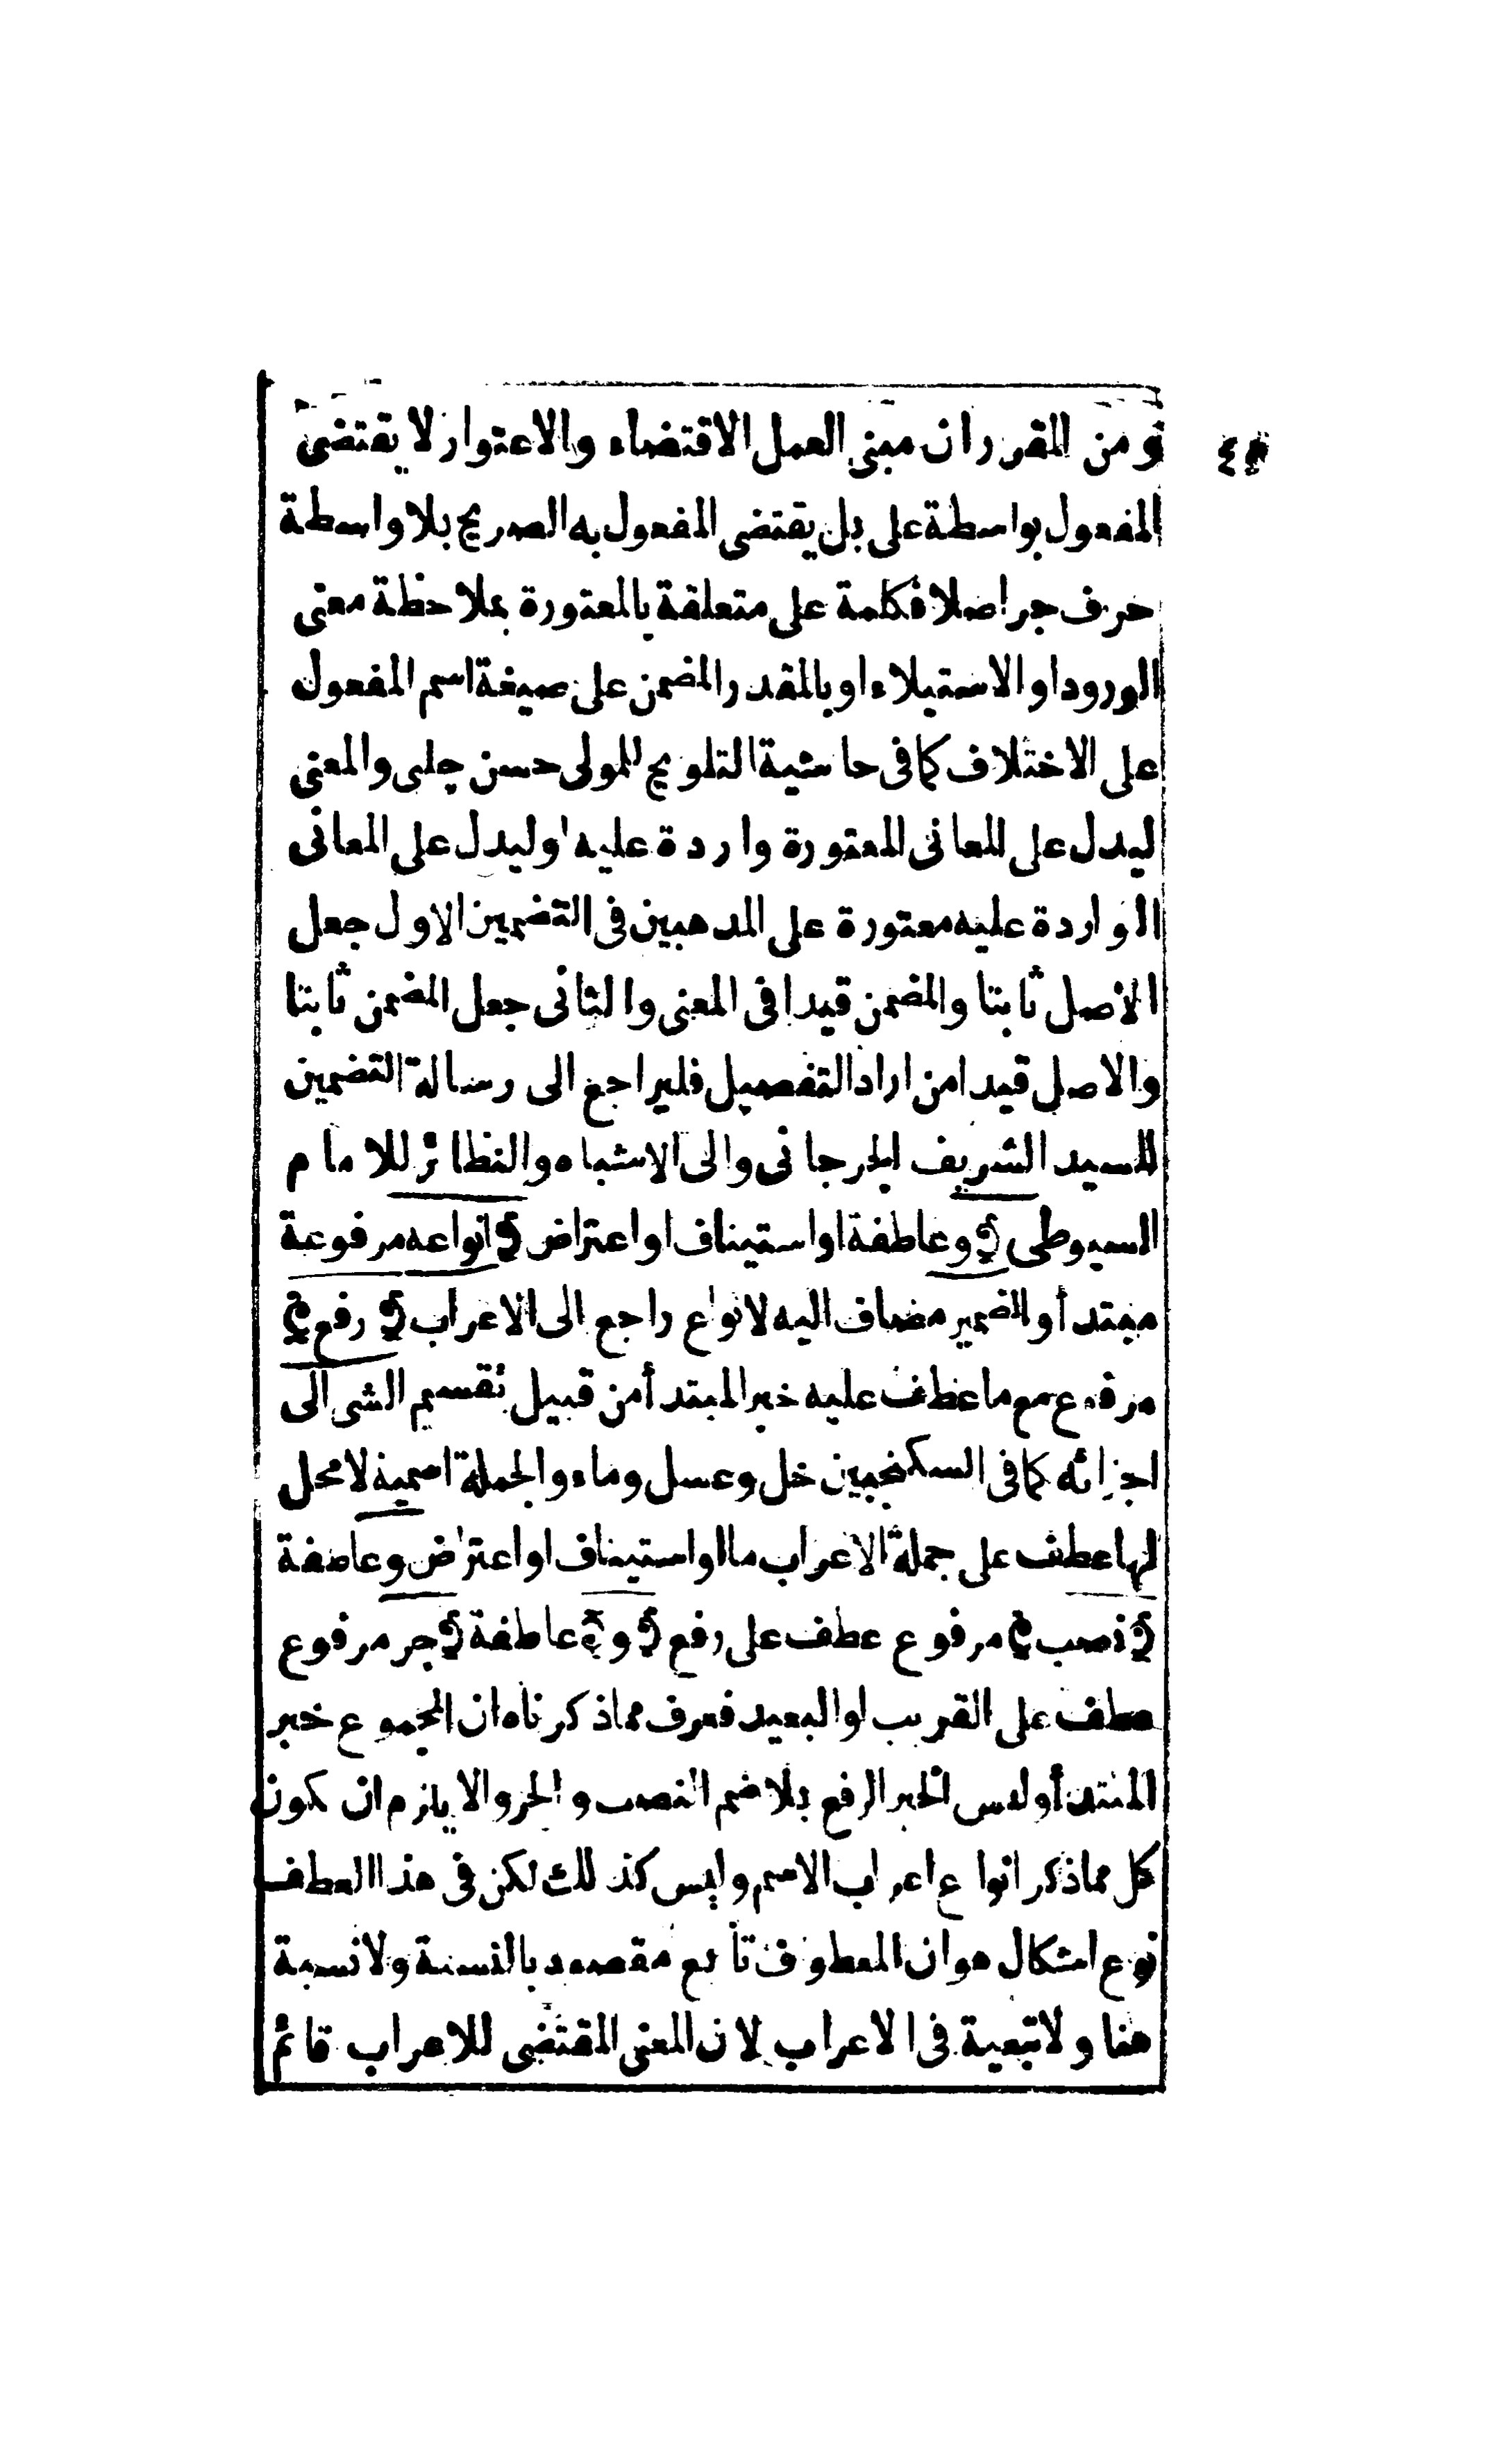 ومن المقرر ان مبنى العمل الاقتضاء والاعتوار لا يقتضى
المفعول بواسطة على بل يقتضى المفعول به الصريح بلا واسطة
حرف جر اصلا فكلمة على متعلقة بالمعتورة بملاحظة معنى
الورود او الاستيلاء او بالمقدر المضمن على صيغة اسم المفعول
على الاختلاف كما فى حاشية التلويح للمولى حسن چلبى والمعنى
ليدل على المعانى المعتورة واردة عليه او ليدل على المعانى
الواردة عليه معتورة على المذهبين فى التضمين الاول جعل
الاصل ثابتا والمضمن قيدا فى المعنى والثانى جعل المضمن ثابتا
والاصل قيدا من اراد التفصيل فليراجع الى رسالة التضمين
للسيد الشريف الجرجانى والى الاشباه والنظائر للامام
السيوطى ﴿ و عاطفة او استيناف او اعتراض ﴿ انواعه مرفوعة
مبتدأ والضمير مضاف اليه لانواع راجع الى الاعراب ﴿ رفع ﴾
مرفوع مع ما عطف عليه خبر المبتدأ من قبيل تقسيم الشى الى
اجزائه كما فى السكنجبين خل وعسل وماء والجملة اسمية لا محل
لها عطف على جملة الاعراب ما او استيناف او اعتراض و عاطفة
﴿ نصب ﴾ مرفوع عطف على رفع ﴿ و ﴾ عاطفة ﴿ جر مرفوع
عطف على القريب او البعيد فعرف مما ذكرناه ان المجموع خبر
المبتدأ وليس الخبر الرفع بلا ضم النصب والجر والا يلزم ان يكون
كل مما ذكر انواع اعراب الاسم وليس كذلك لكن فى هذا العطف
نوع اشكال هو ان المعطوف تابع مقصود بالنسبة ولا نسبة
هنا ولا تبعية فى الاعراب لان المعنى المقتضى للاعراب قائم